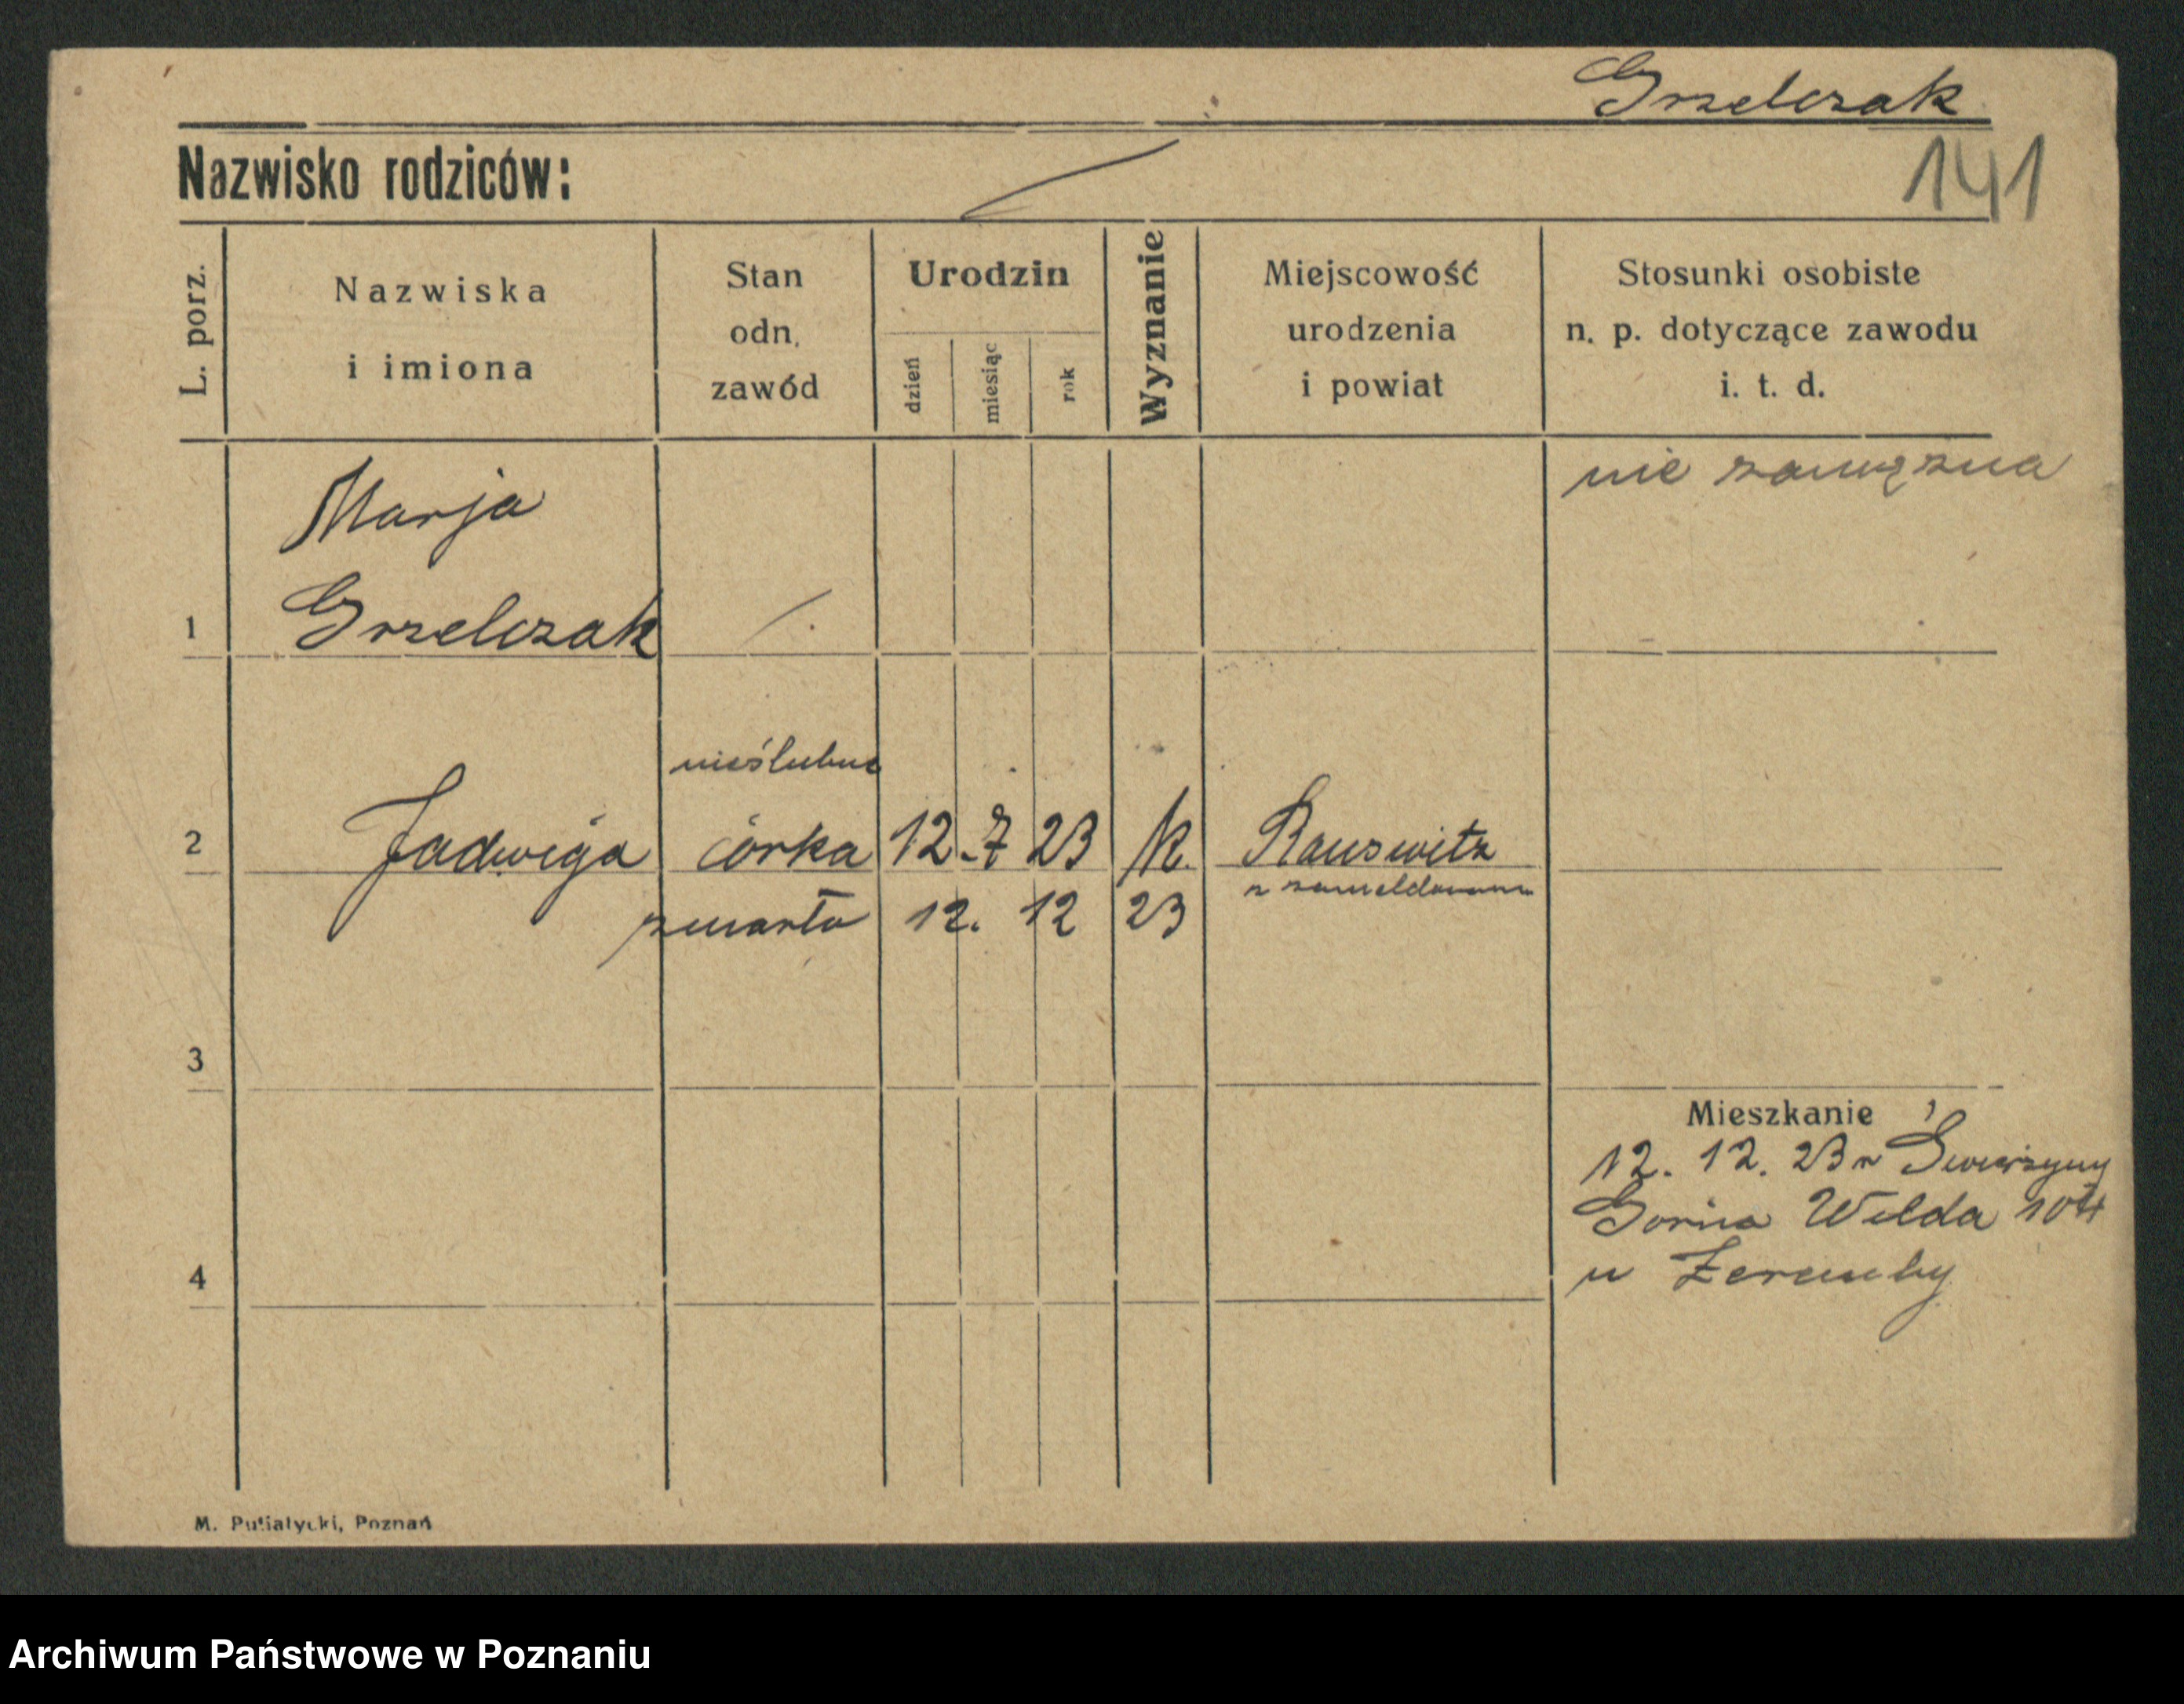 Grzelczak
Nazwisko rodziców:
141
L. porz.
Nazwiska
i imiona
Stan
odn.
zawód
Urodzin
dzień
miesiąc
rok
Wyznanie
Miejscowość
urodzenia
i powiat
Stosunki osobiste
n. p. dotyczące zawodu
i. t. d.
Marja
nie zamężna
1 Grzelczak
nieślubna
2 Jadwiga córka 12. 7 23 k.
zmarła 12. 12 23
3
Mieszkanie
12. 12. 23
Górna Wilda 104
4 u Zeremby
M. Putiatycki, Poznań
Archiwum Państwowe w Poznaniu